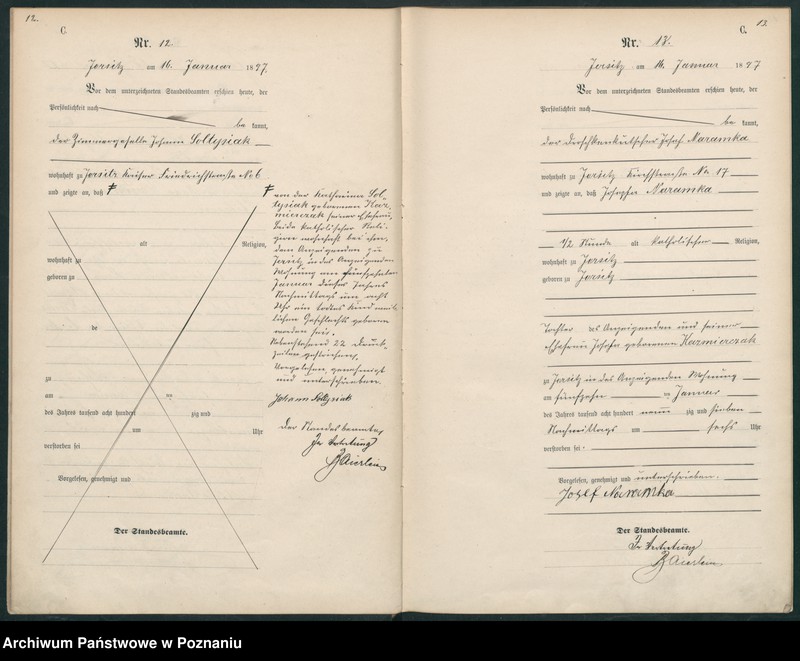 12.
C.
Nr. 12.
Jersitz am 16. Januar 1897.
Vor dem unterzeichneten Standesbeamten erschien heute, der
Persönlichkeit nach
be kannt,
der Zimmergeselle Johann Soltysiak
wohnhaft zu Jersitz Kaiser Friedrichstraße No 6
und zeigte an, daß
alt Religion,
wohnhaft zu
geboren zu
de
zu
am
des Jahres tausend acht hundert zig und
um Uhr
verstorben sei
Vorgelesen, genehmigt und
Der Standesbeamte.
von der Katharina Sol-
tysiak geborenen Kaz-
mierczak seiner Ehefrau,
beide katholischer Reli-
gion wohnhaft bei ihm,
dem Anzeigenden zu
Jersitz in der Anzeigenden
Wohnung am fünfzehnten
Januar dieses Jahres
Nachmittags um acht
Uhr ein todtes Kind weib-
lichen Geschlechts geboren
worden sei.
Vorstehend 22 Druck-
zeilen gestrichen.
Vorgelesen, genehmigt
und unterschrieben.
Johann Soltysiak
Der Standesbeamte,
In Vertretung
13.
C.
Nr. 13.
Jersitz am 16. Januar 1897
Vor dem unterzeichneten Standesbeamten erschien heute, der
Persönlichkeit nach
be kannt,
der Droschkenkutscher Josef Naramka
wohnhaft zu Jersitz Kirchstraße No. 17
und zeigte an, daß Josepha Naramka
1/2 Stunde alt katholischer Religion,
wohnhaft zu Jersitz
geboren zu Jersitz
Tochter des Anzeigenden und seiner
Ehefrau Josefa geborenen Kazmierczak
zu Jersitz in des Anzeigenden Wohnung
am fünfzehn ten Januar
des Jahres tausend acht hundert neun zig und sieben
Nachmittags um sechs Uhr
verstorben sei.
Vorgelesen, genehmigt und unterschrieben.
Josef Naramka
Der Standesbeamte.
In Vertretung
Archiwum Państwowe w Poznaniu